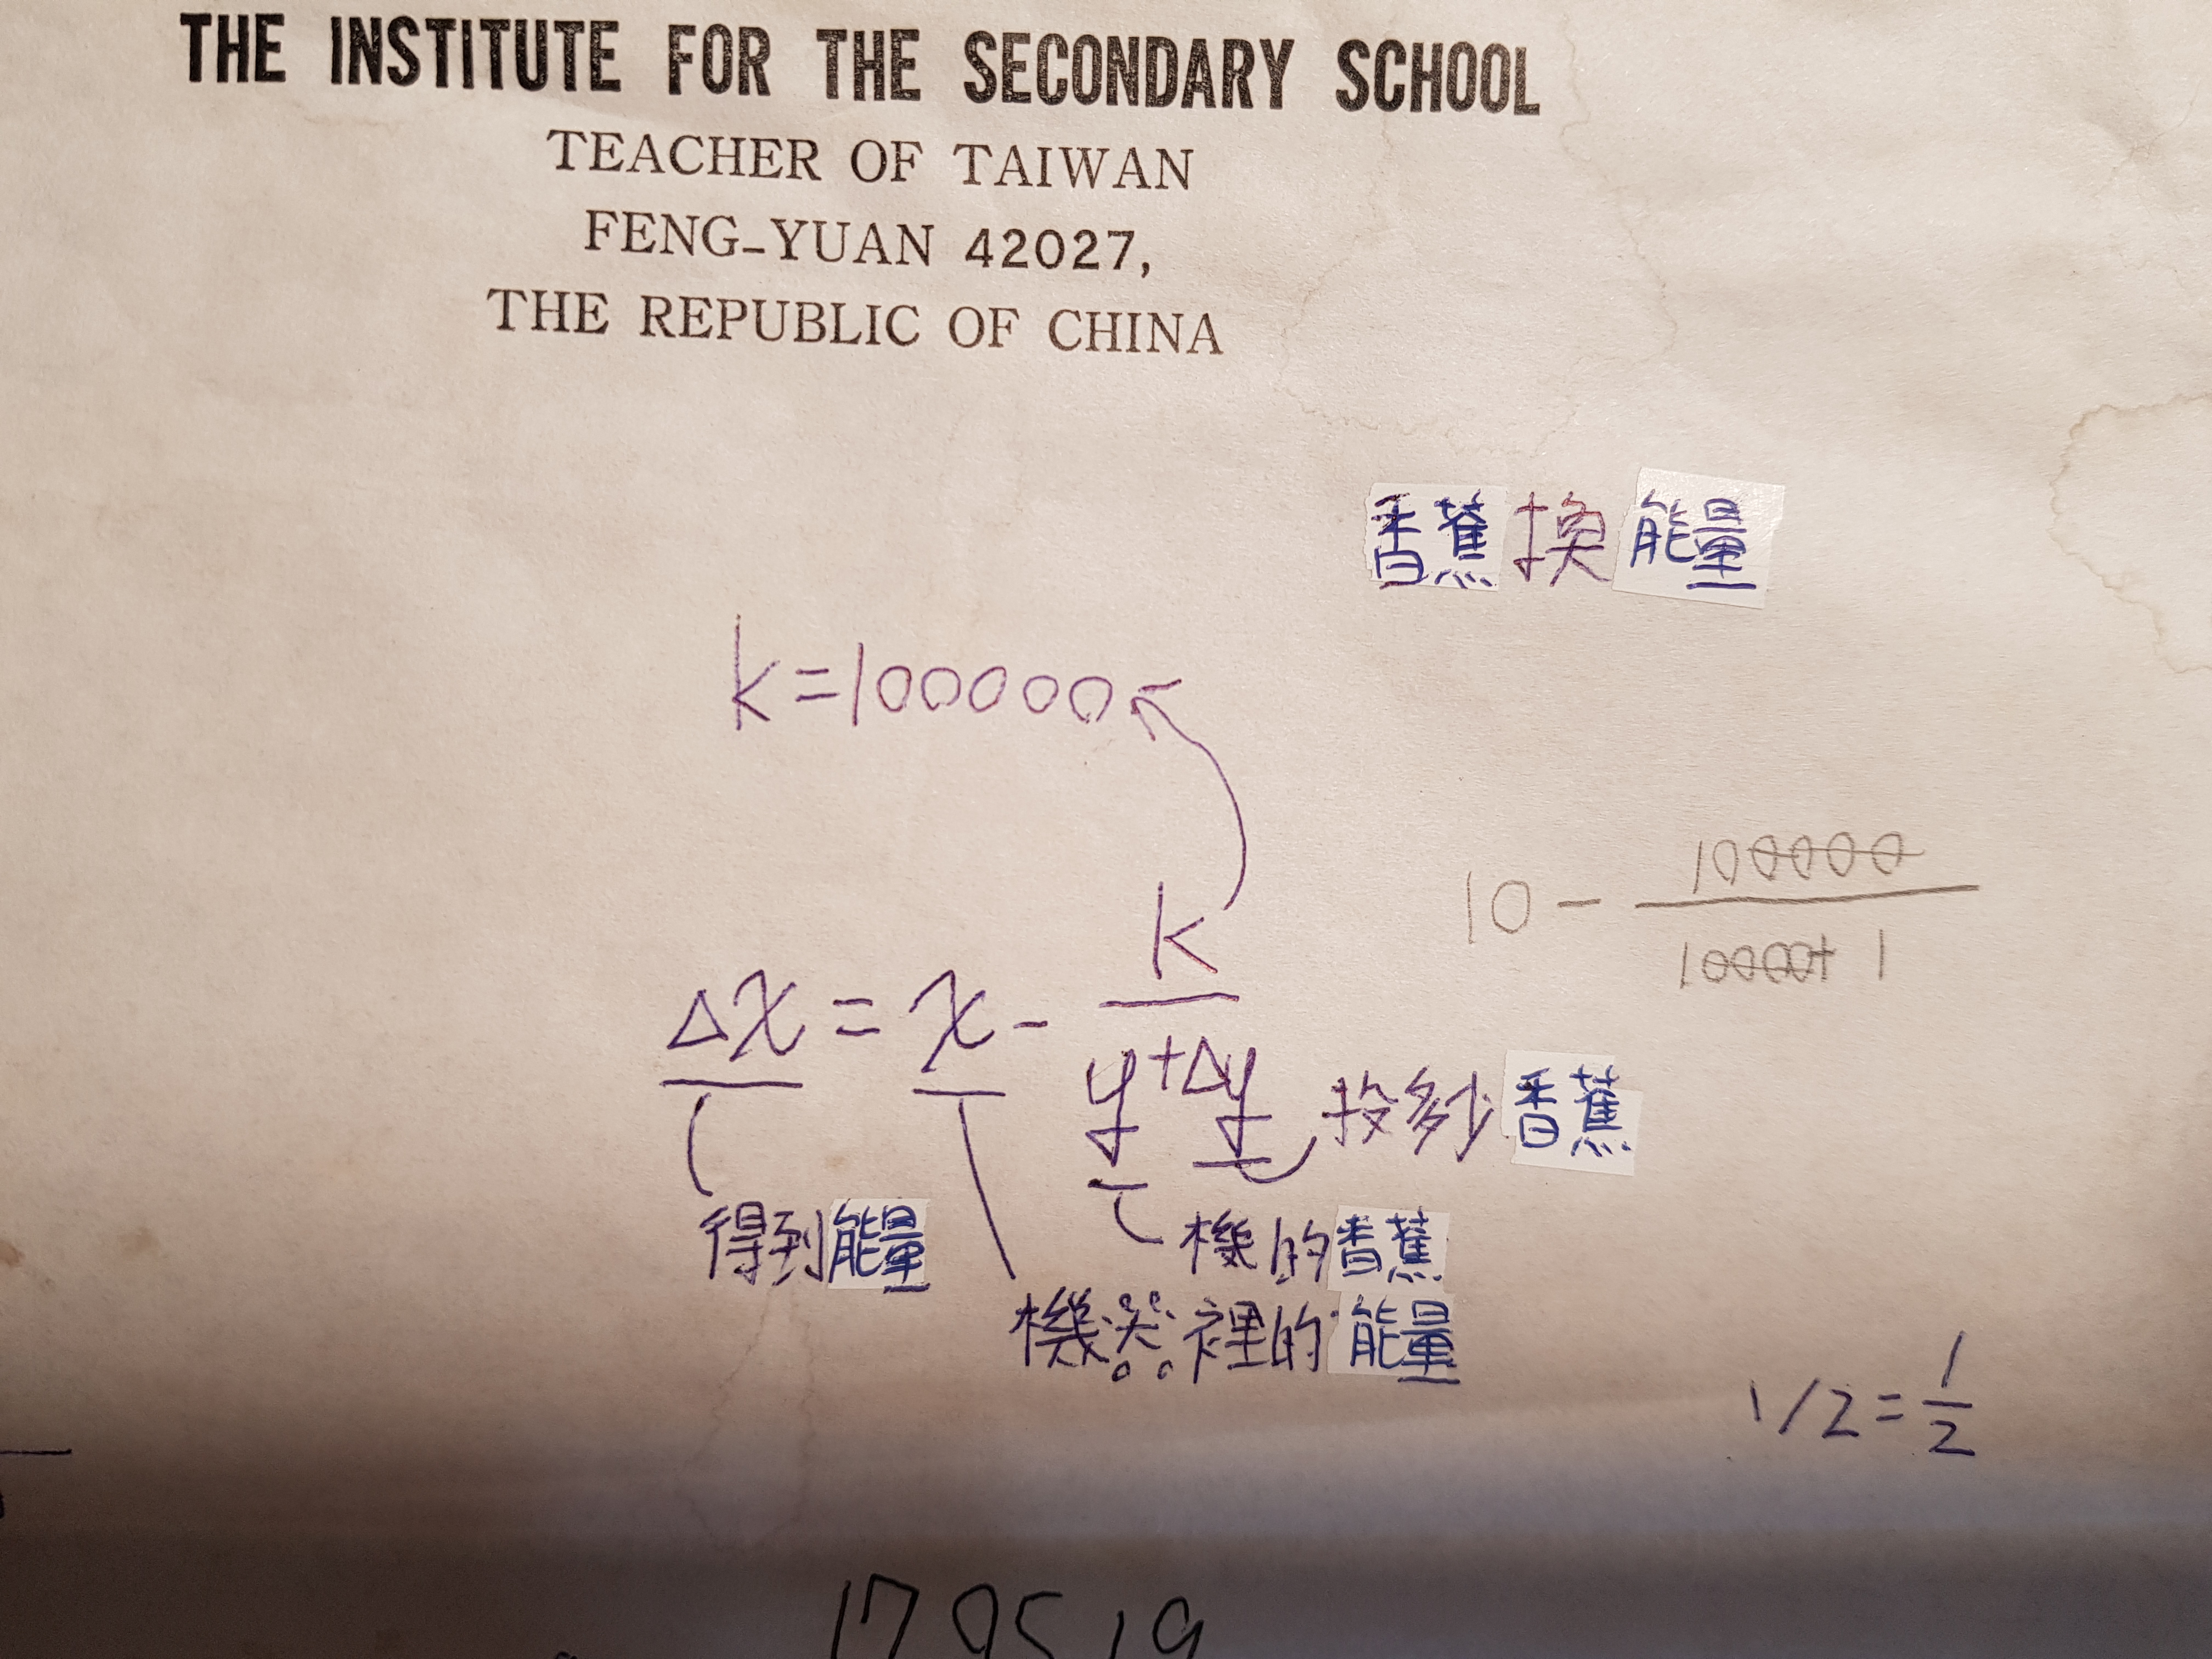 THE INSTITUTE FOR THE SECONDARY SCHOOL
TEACHER OF TAIWAN
FENG-YUAN 42027,
THE REPUBLIC OF CHINA
香蕉換能量
k=100000
10 - 100000 / 10000+1
Δx = x - k / y+Δy
投多少香蕉
得到能量
機的香蕉
機器裡的能量
1/2 = 1/2